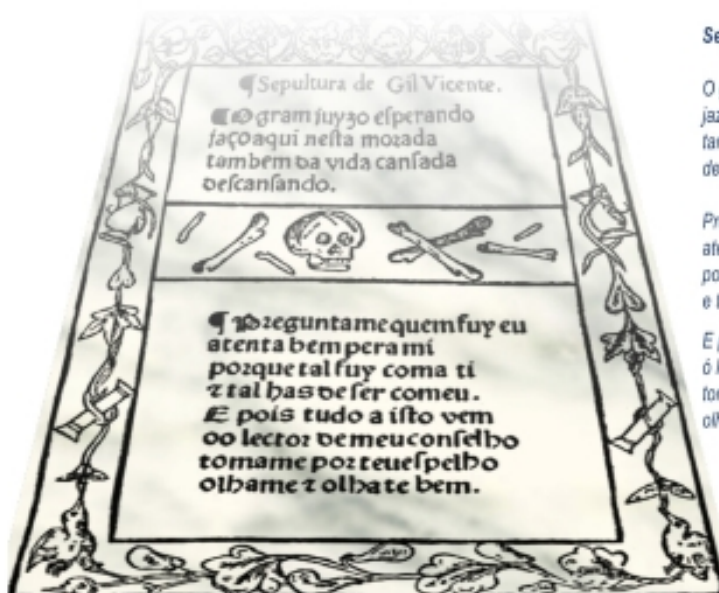 ¶Sepultura de Gil Vicente.
¶O gram juyzo esperando
jaço aqui nesta morada
tambem da vida cansada
descansando.
¶Preguntame quem fuy eu
atenta bem pera mi
porque tal fuy coma ti
⁊ tal has de ser comeu.
E pois tudo a isto vem
oo lector de meu conselho
tomame por teu espelho
olhame ⁊ olhate bem.
O
e